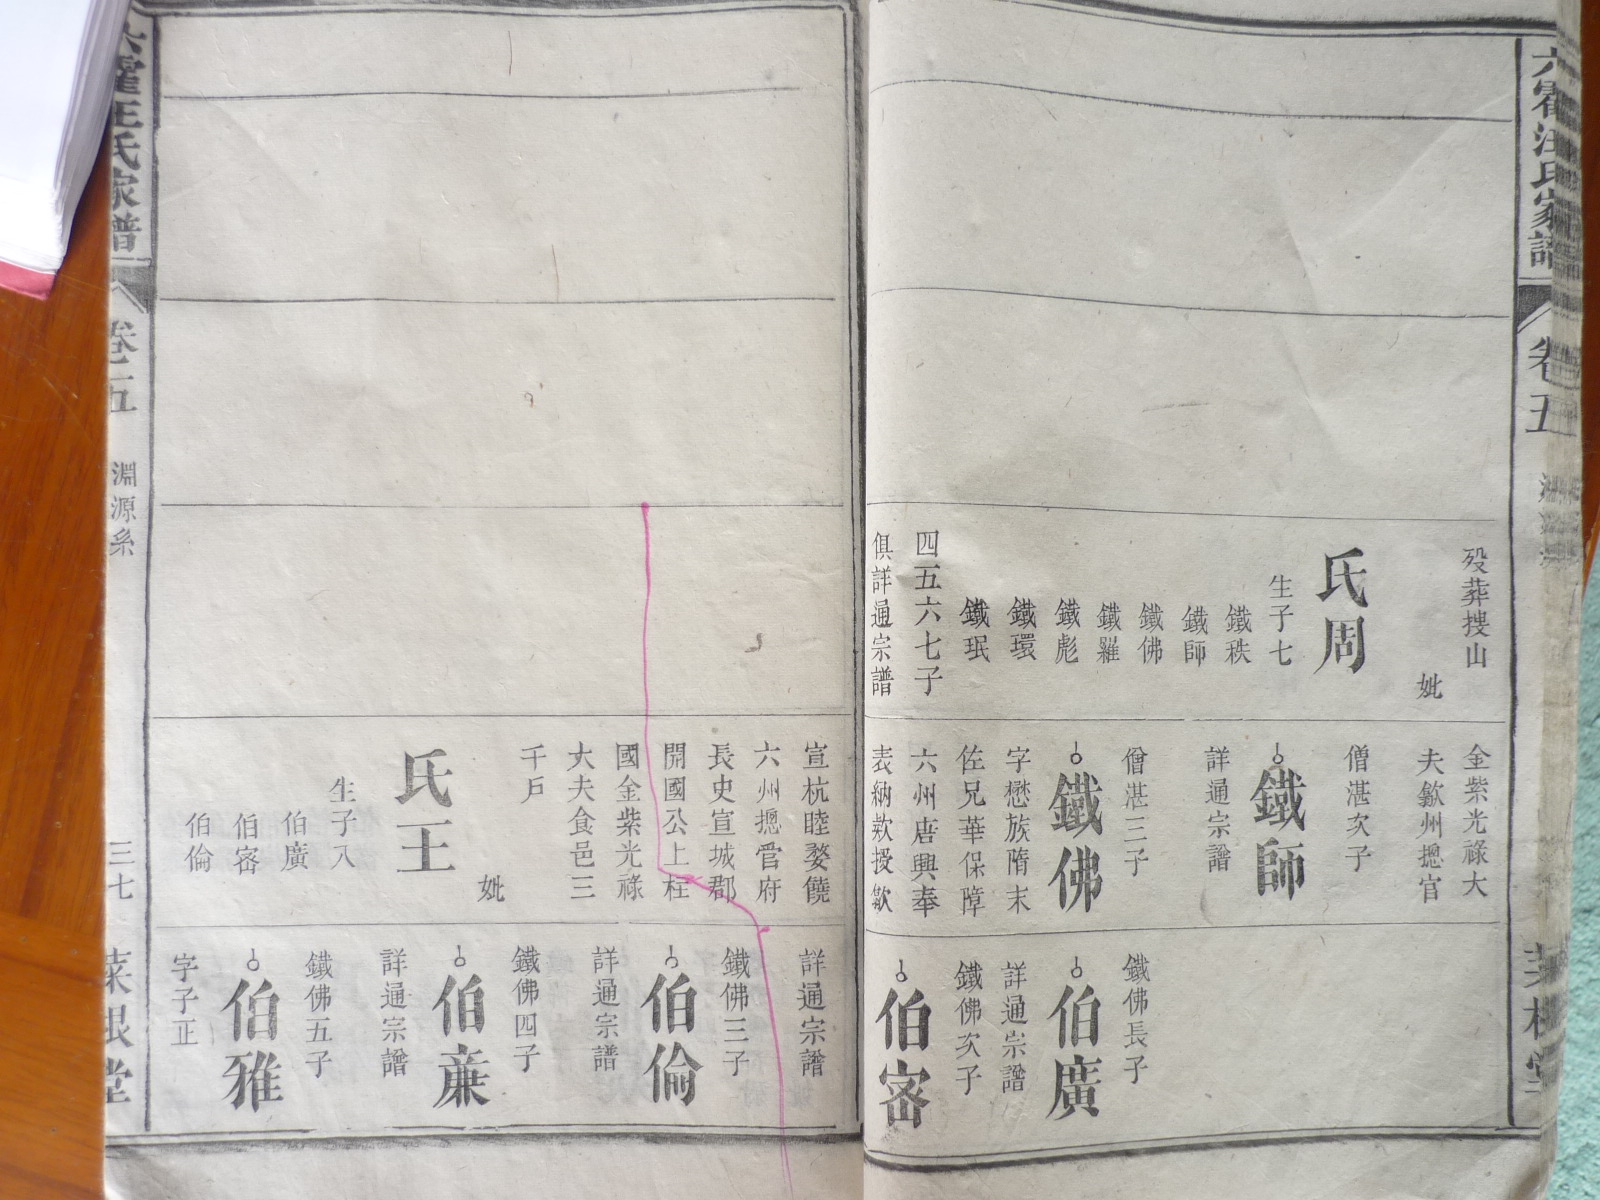 六霍汪氏家譜
卷五
歿葬搜山
妣
氏周
生子七
鐵秩
鐵師
鐵佛
鐵羅
鐵彪
鐵環
鐵珉
四五六七子
俱詳通宗譜
金紫光祿大
夫歙州摠官
僧湛次子
鐵師
詳通宗譜
僧湛三子
鐵佛
字懋族隋末
佐兄華保障
六州唐興奉
表納欵授歙
鐵佛長子
伯廣
詳通宗譜
鐵佛次子
伯宻
宣杭睦婺饒
六州摠管府
長史宣城郡
開國公上柱
國金紫光祿
大夫食邑三
千戶
妣
氏王
生子八
伯廣
伯宻
伯倫
詳通宗譜
鐵佛三子
伯倫
詳通宗譜
鐵佛四子
伯亷
詳通宗譜
鐵佛五子
伯雅
字子正
六霍汪氏家譜
卷五
淵源系
三七
菜根堂